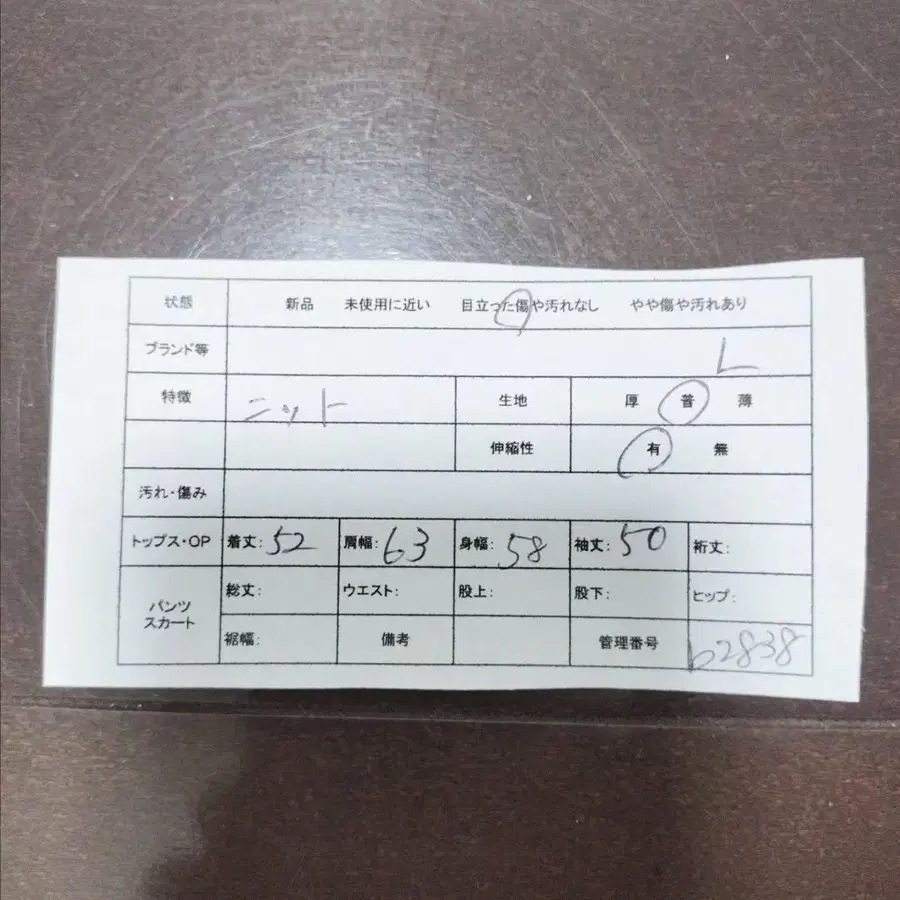 状態 新品 未使用に近い 目立った傷や汚れなし やや傷や汚れあり
ブランド等 L
特徴 ニット 生地 厚 普 薄
伸縮性 有 無
汚れ・傷み
トップス・OP 着丈: 52 肩幅: 63 身幅: 58 袖丈: 50 裄丈:
パンツ スカート 総丈: ウエスト: 股上: 股下: ヒップ:
裾幅: 備考 管理番号 b2838